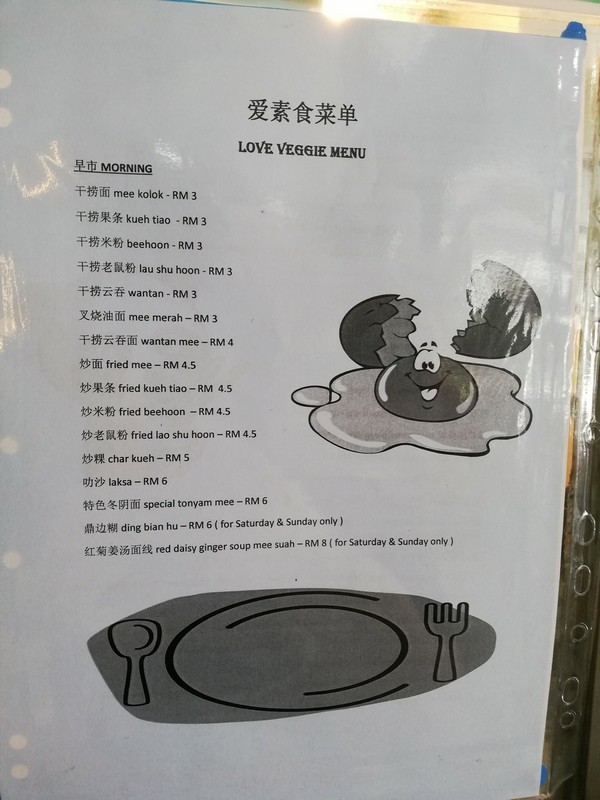 爱素食菜单
LOVE VEGGIE MENU
早市 MORNING
干捞面 mee kolok - RM 3
干捞果条 kueh tiao - RM 3
干捞米粉 beehoon - RM 3
干捞老鼠粉 lau shu hoon - RM 3
干捞云吞 wantan - RM 3
叉烧油面 mee merah – RM 3
干捞云吞面 wantan mee – RM 4
炒面 fried mee – RM 4.5
炒果条 fried kueh tiao – RM 4.5
炒米粉 fried beehoon – RM 4.5
炒老鼠粉 fried lao shu hoon – RM 4.5
炒粿 char kueh – RM 5
叻沙 laksa – RM 6
特色冬阴面 special tonyam mee – RM 6
鼎边糊 ding bian hu – RM 6 ( for Saturday & Sunday only )
红菊姜汤面线 red daisy ginger soup mee suah – RM 8 ( for Saturday & Sunday only )